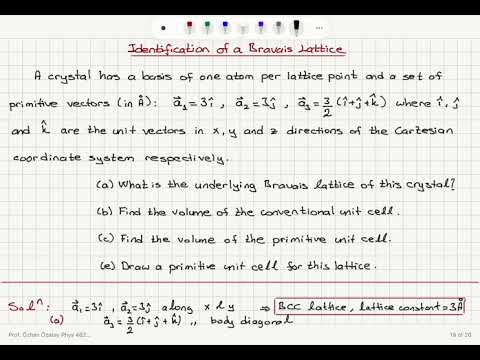 Identification of a Bravais Lattice
A crystal has a basis of one atom per lattice point and a set of
primitive vectors (in Å): a⃗₁=3î , a⃗₂=3ĵ , a⃗₃=3/2 (î+ĵ+k̂) where î, ĵ
and k̂ are the unit vectors in x, y and z directions of the Cartesian
coordinate system respectively.
(a) What is the underlying Bravais lattice of this crystal?
(b) Find the volume of the conventional unit cell.
(c) Find the volume of the primitive unit cell.
(e) Draw a primitive unit cell for this lattice.
Solⁿ a⃗₁=3î , a⃗₂=3ĵ along x & y ⇒ BCC lattice, lattice constant=3Å
(a) a⃗₃=3/2 (î+ĵ+k̂) ,, body diagonal
Prof. Özhan Özatay Phys 482...
19 of 20